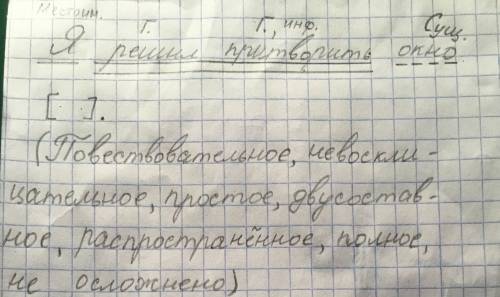 Местоим. Г. Г., инф. Сущ.
Я решил притворить окно
[ ].
(Повествовательное, невоскли-
цательное, простое, двусостав-
ное, распространённое, полное,
не осложнено)